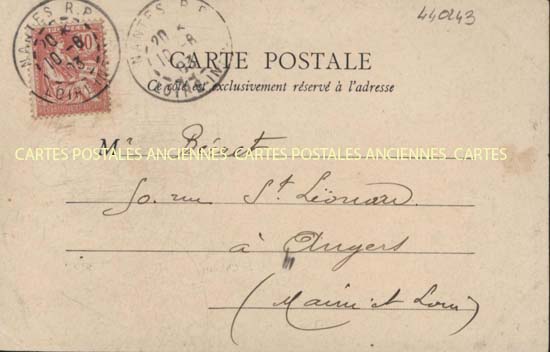 440243
NANTES R.P.
20
10 -8
03
LOIRE INF
NANTES R.P.
20
10 -8
03
LOIRE INF
10
CARTE POSTALE
Ce côté est exclusivement réservé à l'adresse
Mr
CARTES POSTALES ANCIENNES CARTES POSTALES ANCIENNES CARTES
50. rue St Léonard
à Angers
(Maine et Loire)